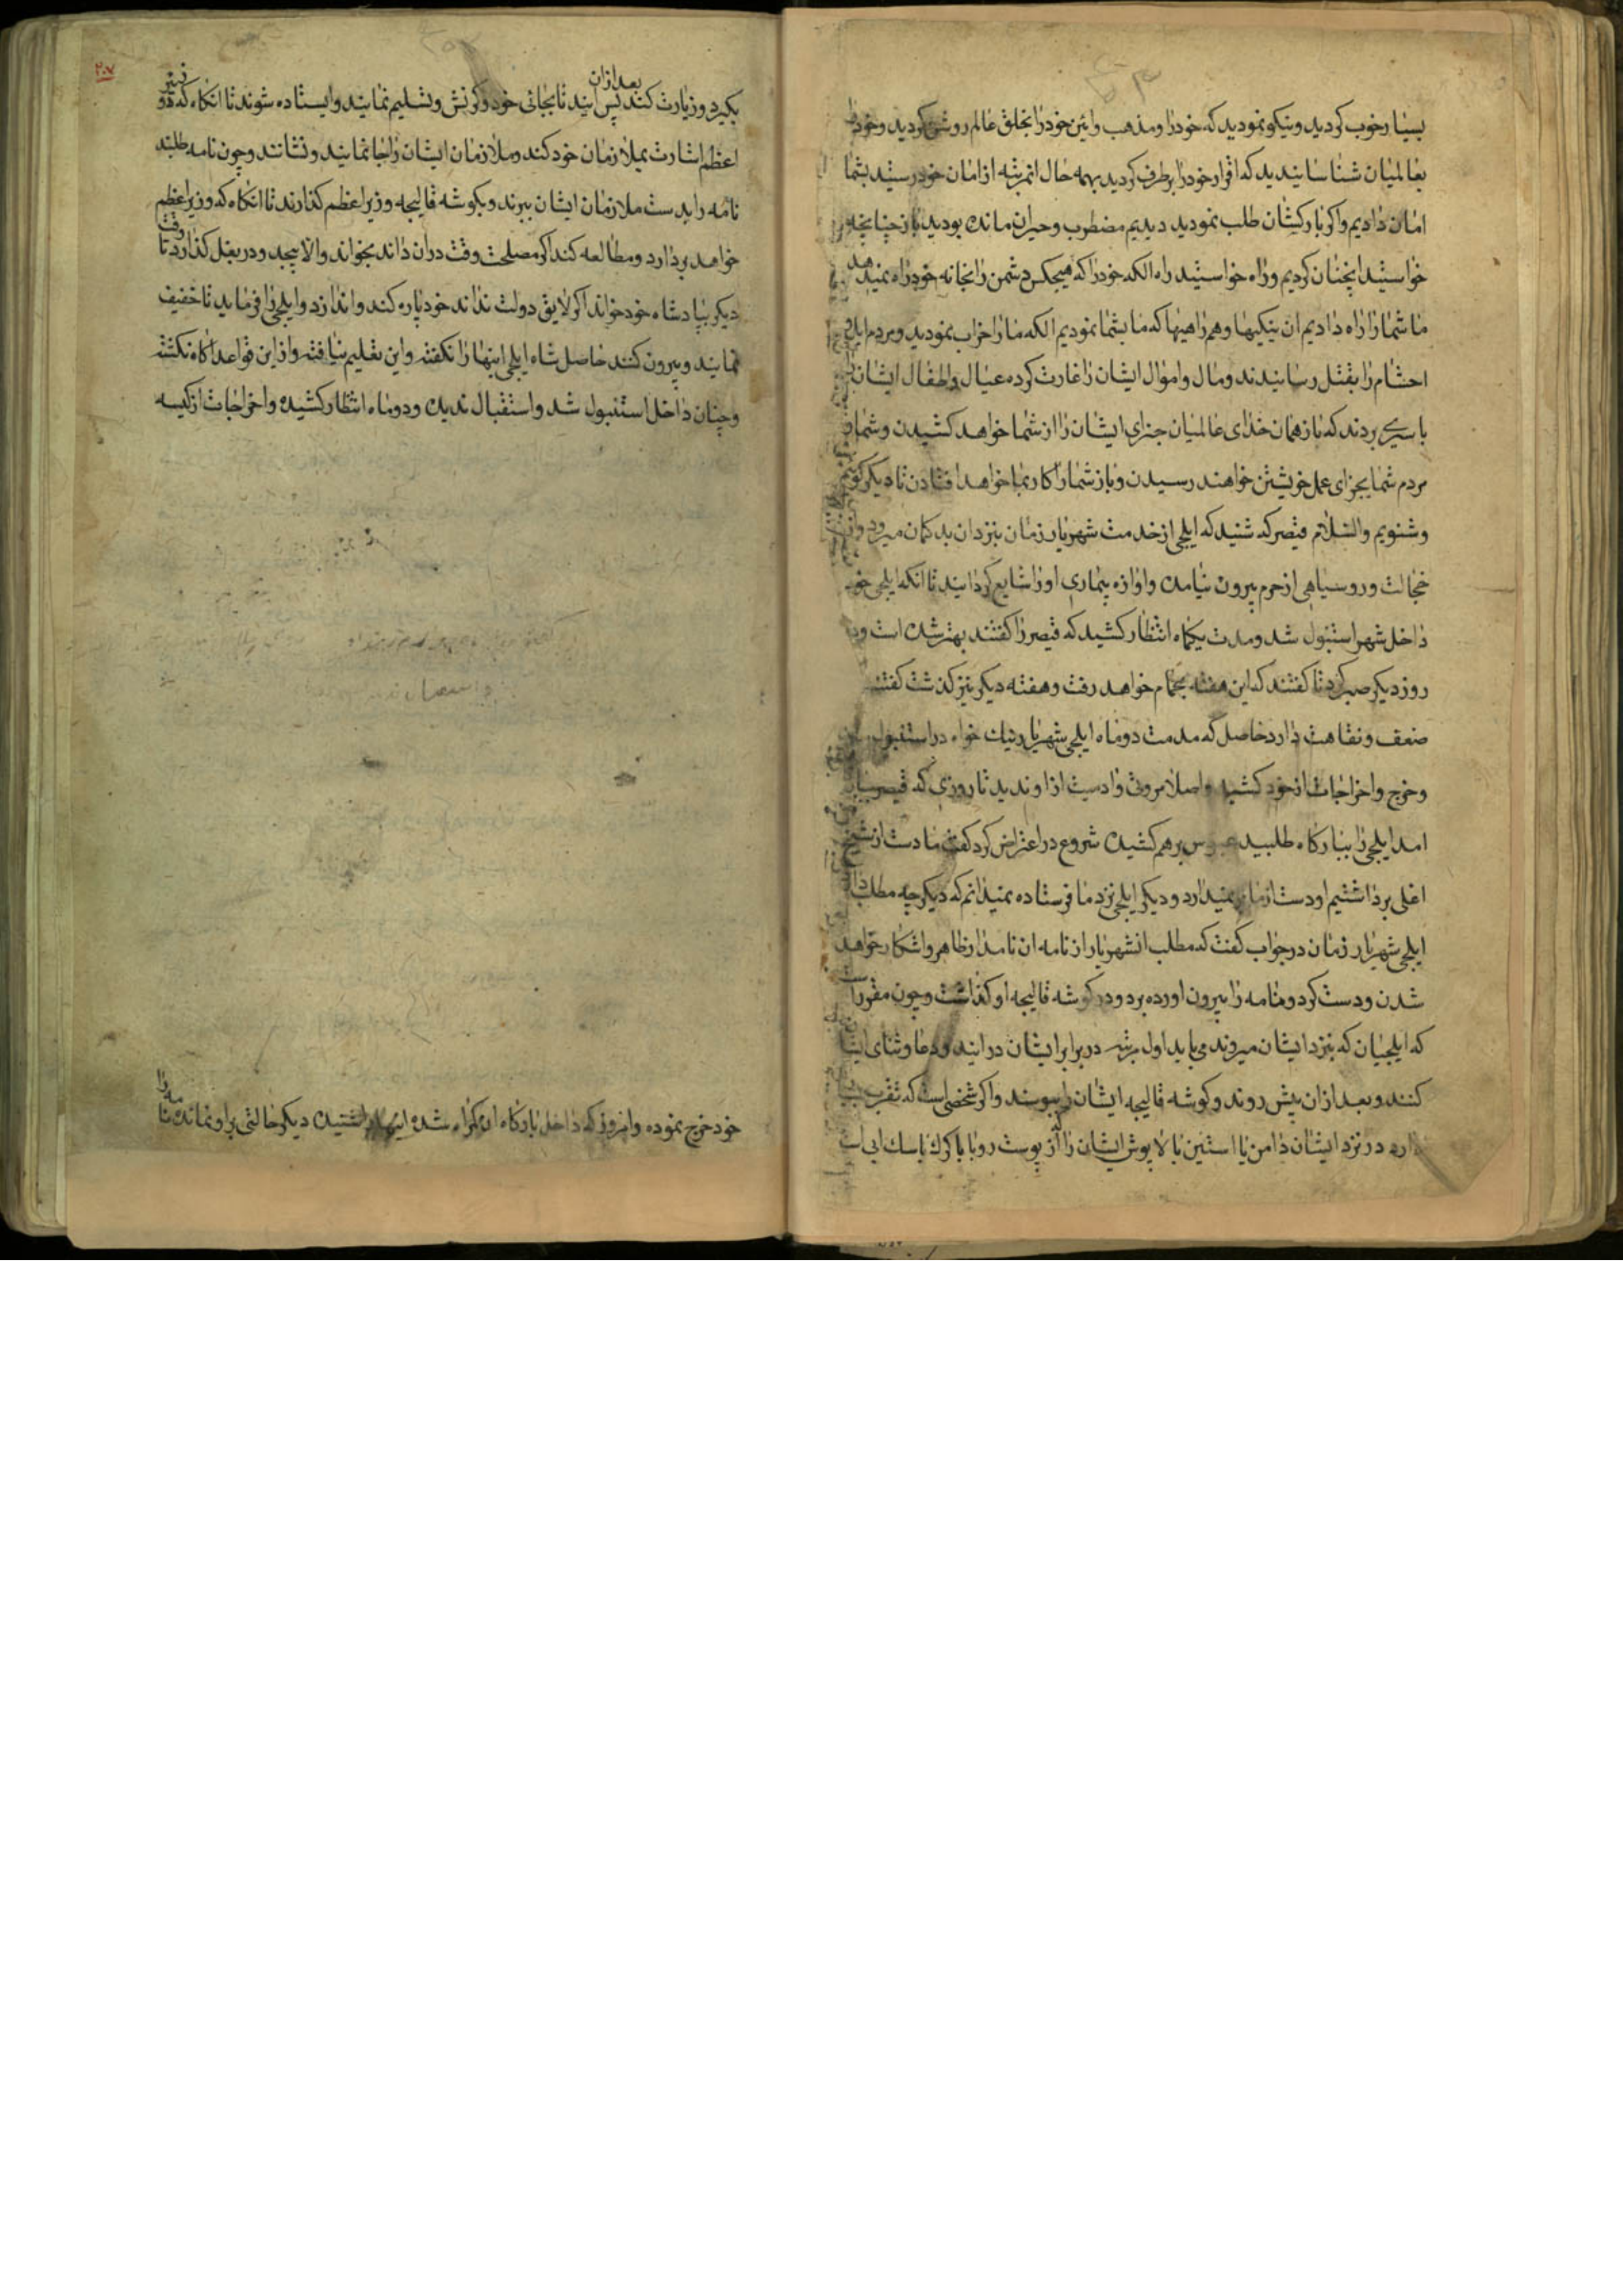 بسیار خوب کردید و نیکو نمودید که خود را و مذهب و ائین خود را بخلق عالم روشن کردید و خود را
بعالمیان شناسانیدید که اقرار خود را برطرف کردید بهمه حال انمرتبه از امان خود رستید بشما
امان دادیم واکر بارکشان طلب نمودید دیدیم مضطرب وحیران مانده بودید باز چنانچه
خواستید انچنان کردیم وراه خواستید راه الکه خود را که هیچکس دشمن را بخانه خود راه نمیدهد
ما شما را راه دادیم ان نیکیها وهمراهیها که ما بشما نمودیم الکه ما را خراب نمودید ومردم ایل و
احشام را بقتل رسانیدند ومال واموال ایشان را غارت کرده عیال واطفال ایشان را
باسیری بردند که باز همان خدای عالمیان جزای ایشان را از شما خواهد کشیدن وشما و
مردم شما بجزای عمل خویشتن خواهند رسیدن وباز شما را کار بما خواهد افتادن تا دیکر کوئیم
وشنویم والسلام قیصر که شنید که ایلچی از خدمت شهریار زمان بنزد ان بدکمان میرود از
خجالت وروسیاهی از حرم بیرون نیامده واوازه بیماری او را شایع کردانیدند تا انکه ایلچی
داخل شهر استنبول شد ومدت یکماه انتظار کشید که قیصر را کفتند بهتر شده است
روز دیکر صبر کرد تا کفتند که این هفته بحمام خواهد رفت وهفته دیکر نیز کذشت کفتند
ضعف ونقاهت دارد حاصل که مدت دو ماه ایلچی شهریار نیک خواه در استنبول
وخرج واخراجات از خود کشید واصلا مروت وادمیت از او ندید تا روزی که قیصر
امد ایلچی را ببارکاه طلبید برهم کشیده شروع در اعتراض کرد کفت ما دست از شیخ
اغلی برداشتیم او دست از ما بر نمیدارد ودیکر ایلچی نزد ما فرستاده نمیدانم که دیکر چه مطلب دارد
ایلچی شهریار زمان در جواب کفت که مطلب انشهریار از نامه ان نامدار ظاهر واشکار خواهد
شدن ودست کرد ونامه را بیرون اورده برد ودر کوشه قالیچه او کذاشت وچون مقرر است
که ایلچیان که بنزد ایشان میروند می باید اول مرتبه در برابر ایشان در ایند ودعا وثنای ایشان
کنند وبعد ازان پیش روند وکوشه قالیچه ایشان را ببوسند واکر شخصی است که تقرب
دارد در نزد ایشان دامن یا استین بالاپوش ایشان را که از پوست روبا یا کرک یا سک ابی است
۲۰۷
بکیرد وزیارت کند بعد ازان پس ایند تا بجای خود وکرنش وتسلیم نمایند وایستاده شوند تا انکاه که وزیر
اعظم اشارت بملازمان خود کند وملازمان ایشان را جا نمایند ونشانند وچون نامه طلبند
نامه را بدست ملازمان ایشان ببرند وبکوشه قالیچه وزیر اعظم کذارند تا انکاه که وزیر اعظم
خواهد بردارد ومطالعه کند اکر مصلحت وقت دران داند بخواند والا پیچد ودر بغل کذارد تا وقت
دیکر بپادشاه خود خواند اکر لایق دولت نداند خود پاره کند واندازد وایلچی را فرماید تا خفیف
نمایند وبیرون کنند حاصل شاه ایلچی اینها را نکفته واین تعلیم نیافته واز این قواعد اکاه نکشته
وچنان داخل استنبول شد واستقبال ندیده ودو ماه انتظار کشیده واخراجات از کیسه
خود خرج نموده وامروز که داخل بارکاه ان کمراه شده اینها را شنیده دیکر حالتی براو نمانده نامه را